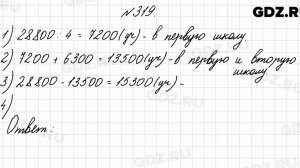 GDZ.R
№319
1) 28800 : 4 = 7200(уч)- в первую школу
2) 7200 + 6300 = 13500(уч)- в первую и вторую
школу
3) 28800 - 13500 = 15300(уч)-
4)
Ответ:
GDZ.RU